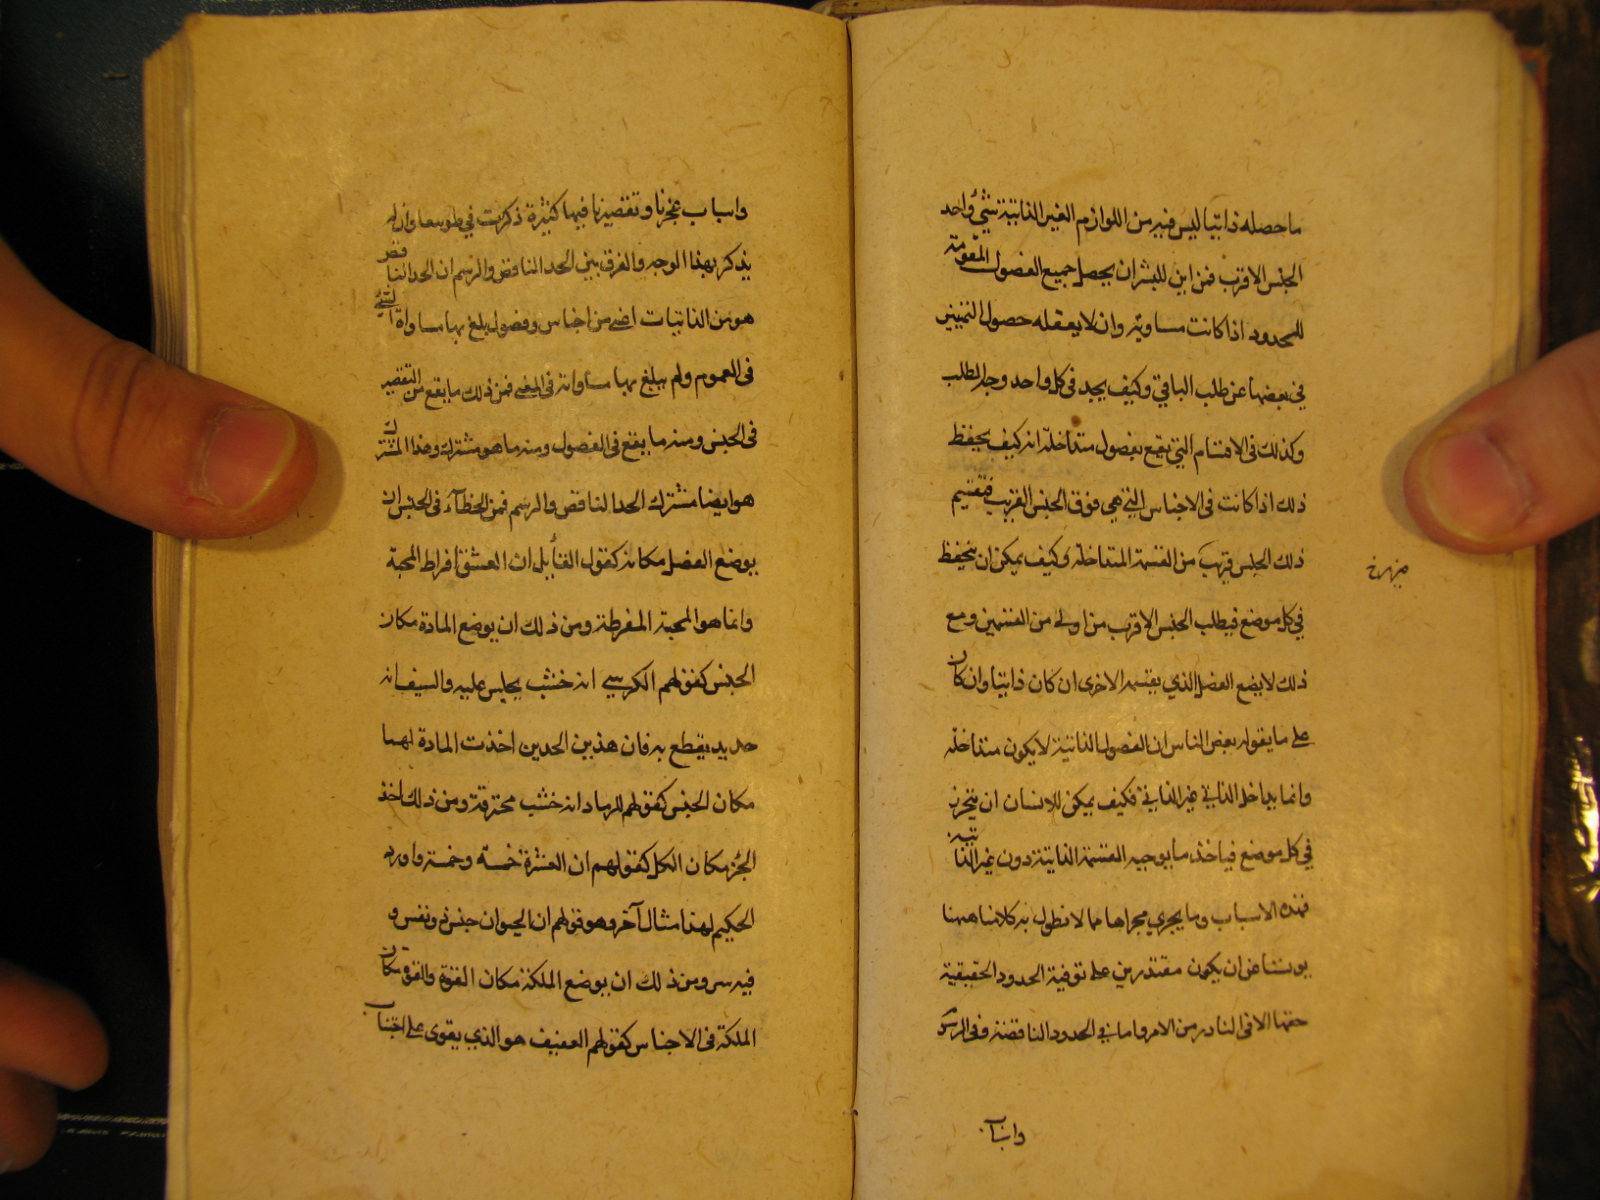 ما حصله ذاتيا ليس فيه من اللوازم الغير الذاتية شئ واحد
الجنس الاقرب فمن اين للبشر ان يحصل جميع الفصول المقومة
للمحدود اذا كانت مساوية وان لا يغفله حصول التمييز
في بعضها عن طلب الباقي وكيف يجد في كل واحد وجه الطلب
وكذلك في الاقسام التي تقع بفصول متداخلة انه كيف يحفظ
ذلك اذا كانت في الاجناس التي هي فوق الجنس القريب فتقسيم
ذلك الجنس قريب من القسمة المتداخلة وكيف يمكن ان يتحفظ
في كل موضع فيطلب الجنس الاقرب من اولى من القسمين ومع
ذلك لا يضع الفصل الذي يقسمه الاخرى ان كان ذاتيا وان كان
على ما يقوله بعض الناس ان الفصول الذاتية لا يكون متداخلة
وانما يداخل الذاتي غير الذاتي فكيف يمكن للانسان ان يتحرز
في كل موضع فياخذ ما يوجبه القسمة الذاتية دون غير الذاتية
فهذه الاسباب وما يجري مجراها مما لا نطول به كلامنا ههنا
يوئسنا عن ان يكون مقتدرين على توفية الحدود الحقيقية
حقها الا في النادر من الامر واما في الحدود الناقصة وفي الرسوم
واسباب
واسباب عجزنا وتقصيرنا فيها كثيرة ذكرت في طوبيقا وان لم
يذكر بهذا الوجه والفرق بين الحد الناقص والرسم ان الحد الناقص
هو من الذاتيات اعني من اجناس وفصول بلغ بها مساواة الشئ
في العموم ولم يبلغ بها مساواته في المعنى فمن ذلك ما يقع من التقصير
في الجنس ومنه ما يقع في الفصول ومنه ما هو مشترك وهذا المشترك
هو ايضا مشترك الحد الناقص والرسم فمن الخطاء في الجنس ان
يوضع الفصل مكانه كقول القائل ان العشق افراط المحبة
وانما هو المحبة المفرطة ومن ذلك ان يوضع المادة مكان
الجنس كقولهم الكرسي انه خشب يجلس عليه والسيف انه
حديد يقطع به فان هذين الحدين اخذت المادة لهما
مكان الجنس كقولهم للرماد انه خشب محترقة ومن ذلك اخذ
الجزء مكان الكل كقولهم ان العشرة خمسة وخمسة واورد
الحكيم لهذا مثال آخر وهو قولهم ان الحيوان جسم ذو نفس و
فيه سر ومن ذلك ان يوضع الملكة مكان القوة والقوة مكان
الملكة في الاجناس كقولهم العفيف هو الذي يقوى على اجتناب